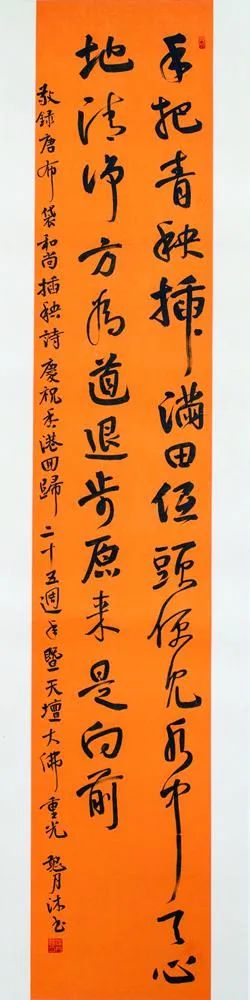 手把青秧插滿田低頭便見水中天心
地清淨方為道退步原來是向前
敬錄唐布袋和尚插秧詩 慶祝香港回歸二十五週年暨天壇大佛重光 月沐书